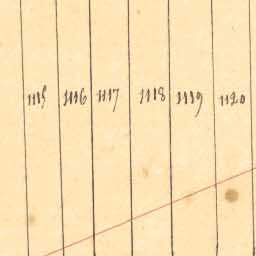 1115 1116 1117 1118 1119 1120